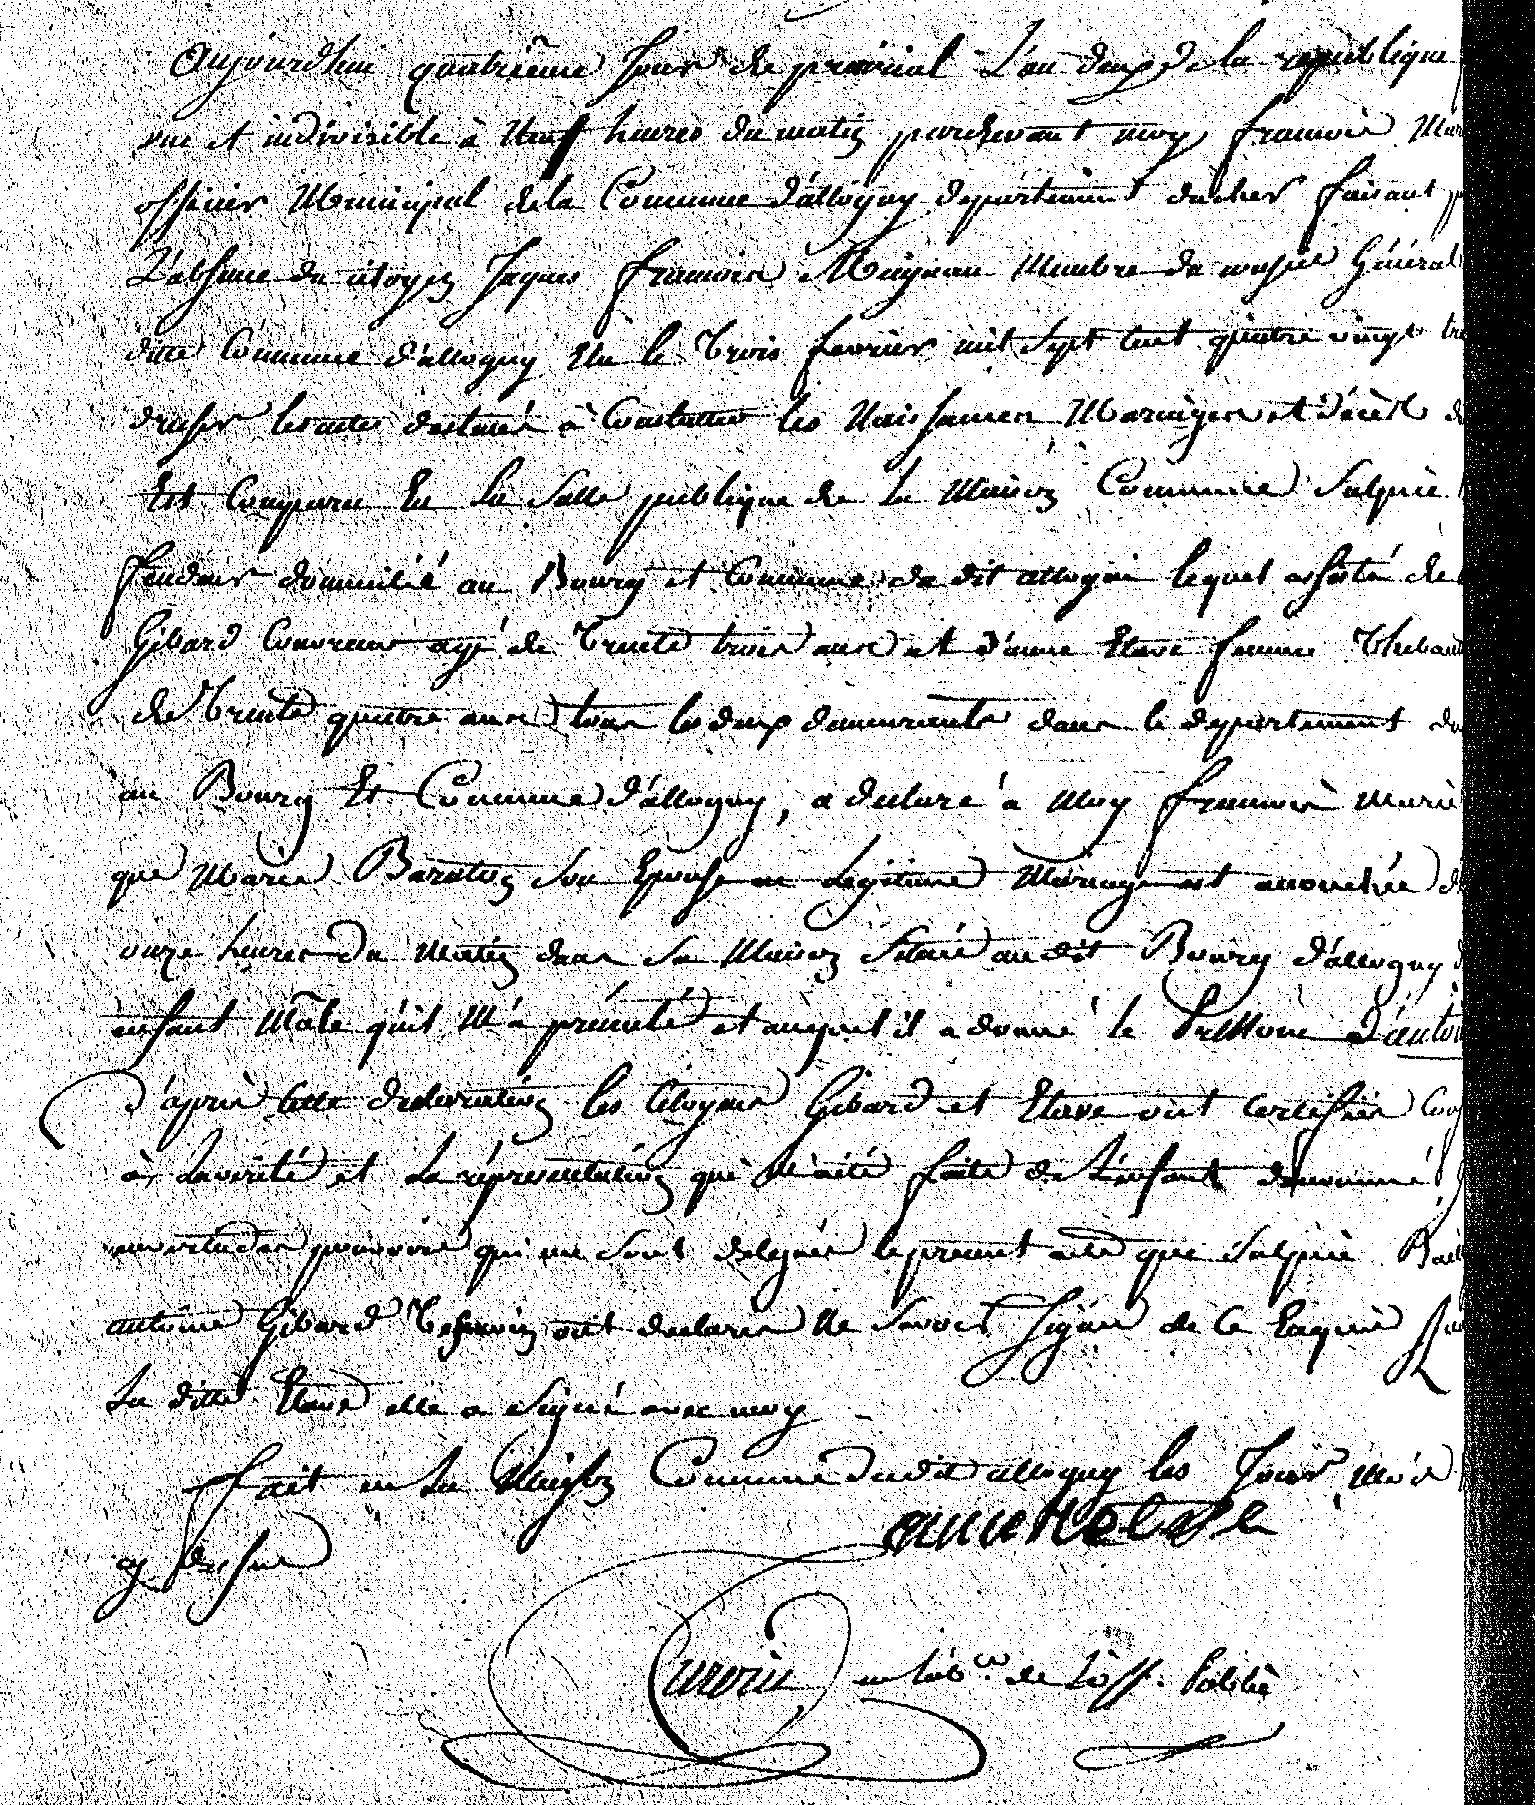 Aujourdhui quatrième Jour de prairial L'an deux de la republique
une et indivisible à Neuf heures du matin pardevant moy francois
officier Municipal de la Commune d'allogny departement du cher faisant
L'absence du citoyen Jaques francois Meigneau Membre du conseil Général
ditte Commune d'allogny Elu le Trois fevrier mil sept cent quatre vingt
dresser les actes destinés à Constatter les Naissances Mariages et décès
Est Comparu En La Salle publique de la Maison Commune Sulpice
fendeur domicilié au Bourg et Commune du dit allogni lequel assisté de
Gibard Couvreur agé de Trente trois ans et d'anne Elave femme
de Trente quatre ans tous les deux demeurants dans le departement
au Bourg Et Commune d'allogny, a declaré a Moy francois
que Marie Son Epouse en Legitime Mariage est accouchée
onze heures du Matin dans Sa Maison Située au dit Bourg d'allogny
enfant Mâle qu'il M'a présenté et auquel il a donné le
d'après cette declaration les Citoyens Gibard et Elave ont certifiés
à La vérité et La réprésentation qui M'aité faite de L'enfant denommé
en vertu des pouvoirs qui me Sont delegués le present acte que Sulpice
antoine Gibard Tesmoin ont declarés Ne Savoir Signer de Ce Enquis
La ditte Elave elle a Signé avec moy
ffait en La Maison Commune dudit allogny les Jour Mois
dessus
anne
de L'off. Public